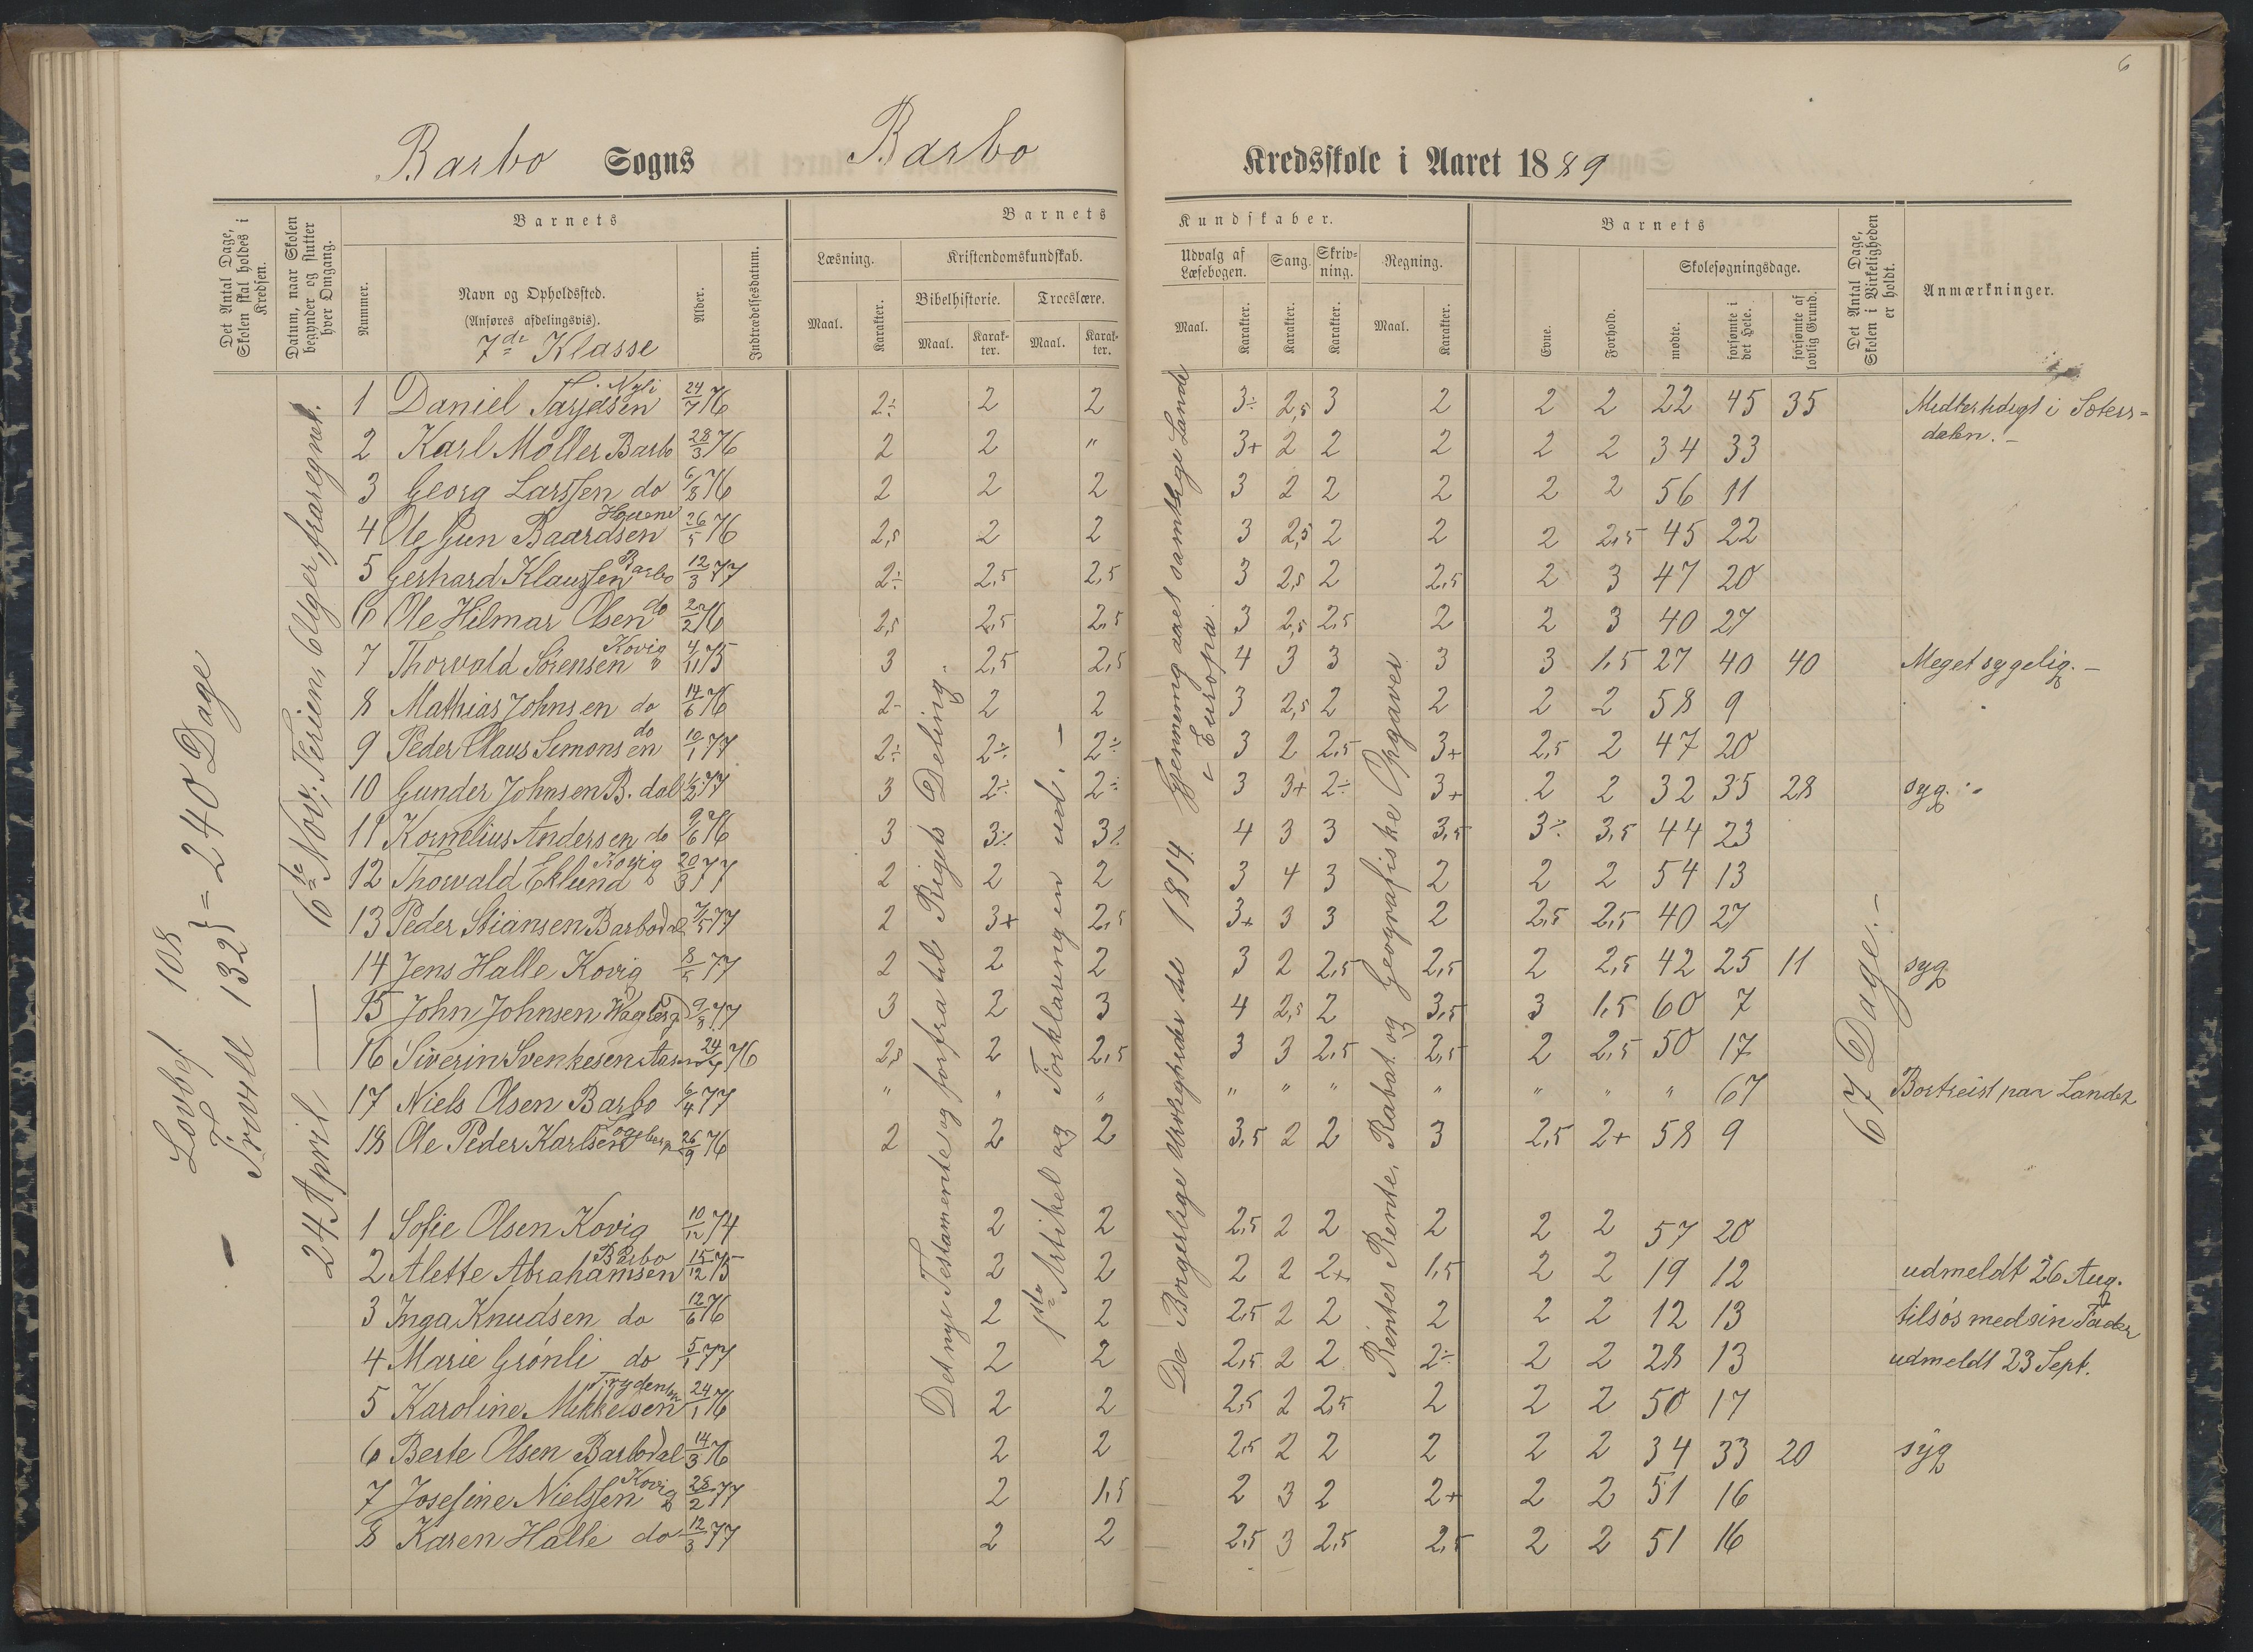 6
Barbo Sogns Barbo Kredsskole i Aaret 1889
Det Antal Dage, Skolen skal holdes i Kredsen.
Datum, naar Skolen begynder og slutter hver Omgang.
Nummer.
Barnets
Navn og Opholdssted.
(Anføres afdelingsvis).
7de Klasse
Alder.
Indtrædelsesdatum.
Barnets
Læsning.
Maal.
Karakter.
Kristendomskundskab.
Bibelhistorie.
Maal.
Karakter.
Troeslære.
Maal.
Karakter.
Kundskaber.
Udvalg af Læsebogen.
Maal.
Karakter.
Sang.
Karakter.
Skrivning.
Karakter.
Regning.
Maal.
Karakter.
Barnets
Evne.
Forhold.
Skolesøgningsdage.
mødte.
forsømte i det Hele.
forsømte af lovlig Grund.
Det Antal Dage, Skolen i Virkeligheden er holdt.
Anmærkninger.
Lovbef 108
Frivill 132 } = 240 Dage
24 April — 6te Nov; Ferien, 6 Uger, fraregnet.
Det nye Testamente og forfra til Rigets Deling.
1ste Artikel og Forklaringen ud. —
De Borgerlige Uroligheder til 1814. Gjennemg aaet samtlige Lande i Europa.
Rentes Rente, Rabat og Geografiske Opgaver
67 Dage. —
1 Daniel Tarjesen Nyli 24/7 76 2÷ 2 2 3÷ 2,5 3 2 2 2 22 45 35 i Sæters=
dalen. —
2 Karl Møller Barbo 28/3 76 2 2 " 3+ 2 2 2 2 2 34 33
3 Georg Larssen do 6/8 76 2 2 2 3 2 2 2 2 2 56 11
4 Ole Gun Baardsen 26/5 76 2,5 2 2 3 2,5 2 2 2 2,5 45 22
5 Gerhard Klaussen Barbo 12/3 77 2÷ 2,5 2,5 3 2,5 2 2,5 2 3 47 20
6 Ole Hilmar Olsen do 2/2 76 2,5 2,5 2,5 3 2,5 2,5 2 2 3 40 27
7 Thorvald Sørensen Kovig 4/11 75 3 2,5 2,5 4 3 3 3 3 1,5 27 40 40 Meget sygelig. —
8 Mathias Johnsen do 14/6 76 2- 2 2 3 2,5 2 2 2 2 58 9
9 Peder Claus Simonsen do 10/1 77 2÷ 2÷ 2÷ 3 2 2,5 3+ 2,5 2 47 20
10 Gunder Johnsen B. dal 1/2 77 3 2÷ 2÷ 3 3+ 2÷ 3+ 2 2 32 35 28 syg. —
11 Kornelius Andersen do 9/6 76 3 3÷ 3÷ 4 3 3 3,5 3÷ 3,5 44 23
12 Thorvald Eklund Kovig 20/3 77 2 2 2 3 4 3 2 2 2 54 13
13 Peder Stiansen Barbodal 7/5 77 2 3+ 2,5 3+ 3 3 2 2,5 2,5 40 27
14 Jens Halle Kovig 8/5 77 2 2 2 3 2 2,5 2,5 2 2,5 42 25 11 syg
15 John Johnsen 9/8 77 3 2 3 4 2,5 2 3,5 3 1,5 60 7
16 Siverin Svenkesen 76 2,5 2 2,5 3 3 2,5 2,5 2 2,5 50 17
17 Niels Olsen Barbo 6/4 77 " " " " " " " " " " 67 Bortreist paa Landet
18 Ole Peder Karlsen 26/9 76 2 2 2 3,5 2 2 3 2,5 2+ 58 9
1 Sofie Olsen Kovig 10/12 74 2 2 2,5 2 2 2 2 2 57 20
2 Alette Abrahamsen Barbo 15/12 75 2 2 2 2 2+ 1,5 2 2 19 12 udmeldt 26 Aug.
3 Inga Knudsen do 12/6 76 2 2 2,5 2 2 2 2 2 12 13 tilsøs med sin Fader
4 Marie Grønli do 5/1 77 2 2 2,5 2 2 2÷ 2 2 28 13 udmeldt 23 Sept.
5 Karoline Mikkelsen 24/1 76 2 2 2,5 2 2,5 2 2 2 50 17
6 Berte Olsen Barbodal 14/3 76 2 2 2,5 2 2 2 2 2 34 33 20 syg
7 Josefine Nielssen Kovig 28/2 77 2 1,5 2 3 2 2+ 2 2 51 16
8 Karen Halle do 12/3 77 2 2 2,5 3 2,5 2,5 2 2 51 16